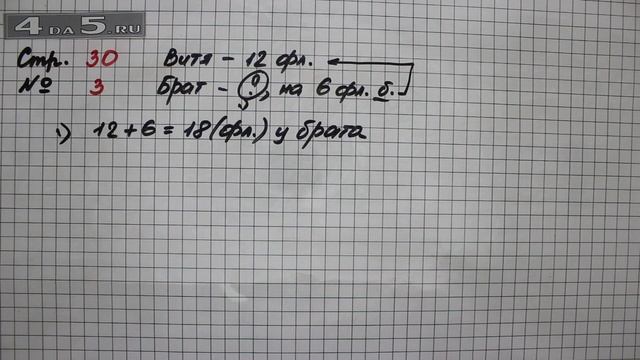 4 DA 5.RU
Стр. 30 Витя - 12 фл.
№ 3 Брат - ?, на 6 фл. б.
1) 12 + 6 = 18 (фл.) у брата